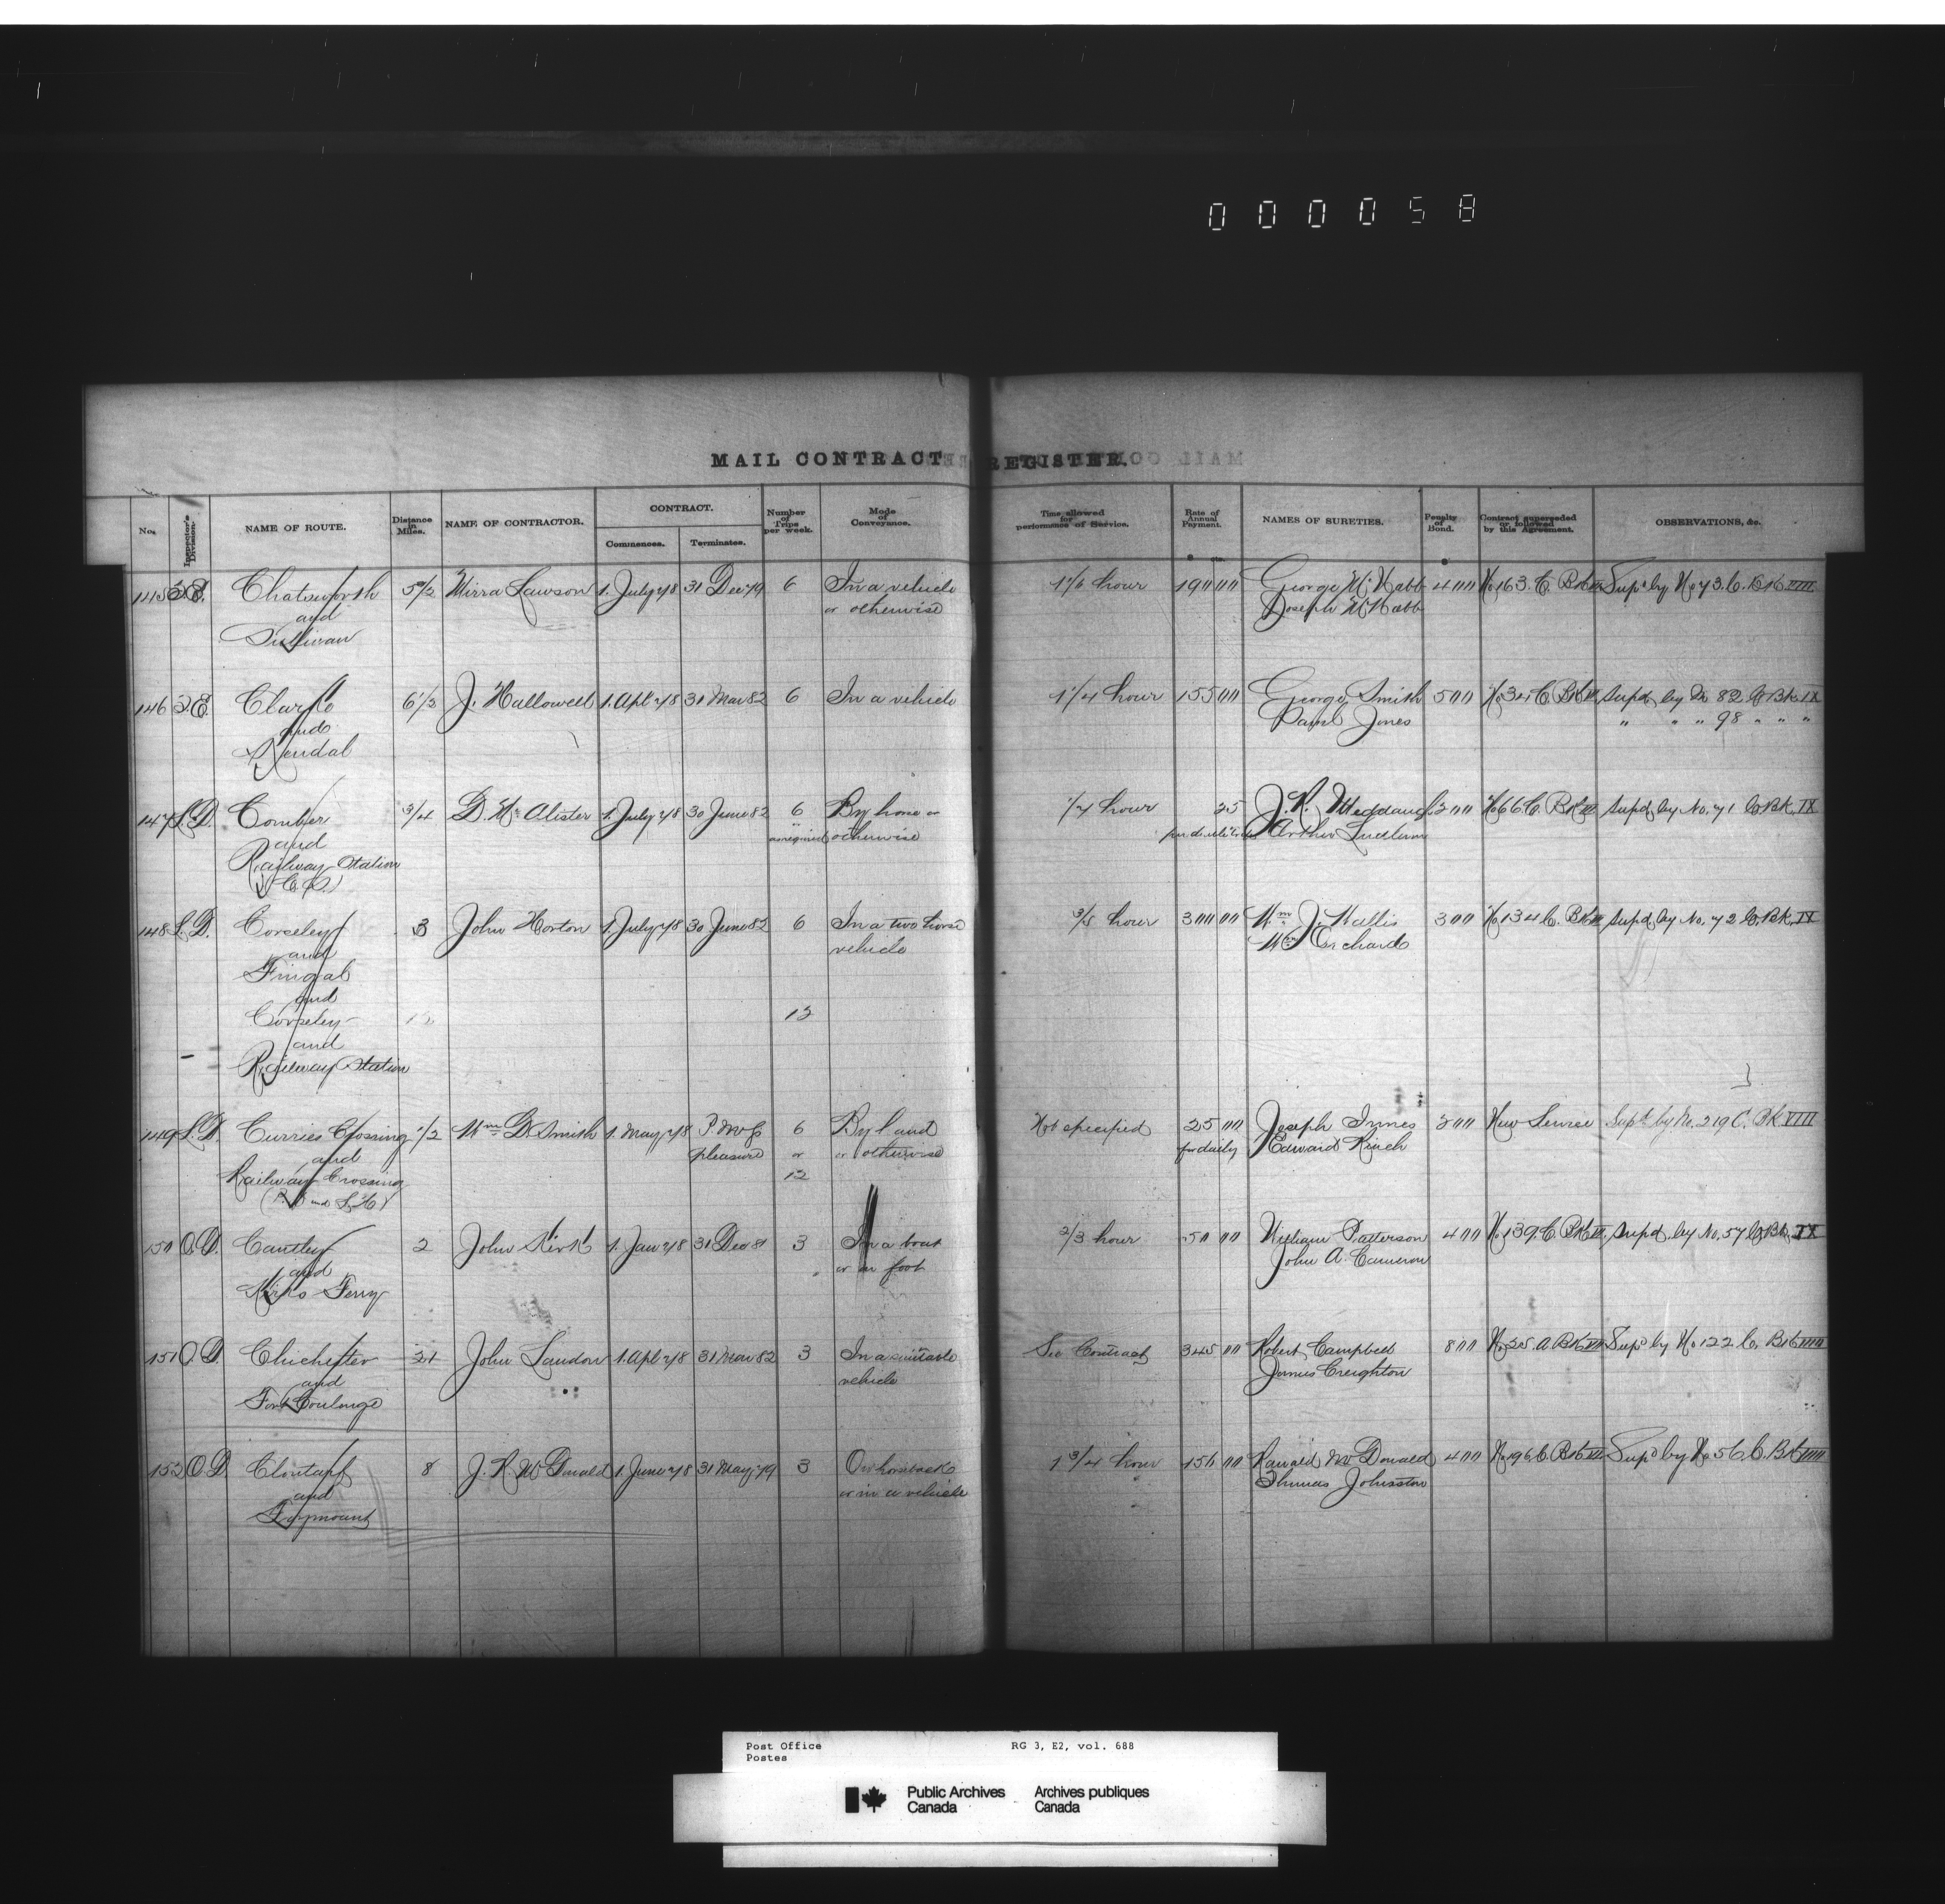 000058
MAIL CONTRACT REGISTER.
No. Inspector's Division. NAME OF ROUTE. Distance in Miles. NAME OF CONTRACTOR. CONTRACT. Commences. Terminates. Number of Trips per week. Mode of Conveyance. Time allowed for performance of Service. Rate of Annual Payment. NAMES OF SURETIES. Penalty of Bond. Contract superseded or followed by this Agreement. OBSERVATIONS, &c.
145 Chatsworth 5 1/2 Mirra Lawson 1. July 78 31 Dec 79 6 In a vehicle 1 1/6 hour 190 00 George McNabb 400 No 163. C. Bk Supd by No 73. C. Bk VIII
and or otherwise Joseph McNabb
Sullivan
146 Clarke 6 1/3 J. Hallowell 1. Apl 78 31 Mar 82 6 In a vehicle 1 1/4 hour 155 00 George Smith 500 No 34 C. Bk Supd by No 82 C. Bk IX
and Paul Jones " " " 98 " " "
Kendal
147 L.D. Comber 3/4 D. McAlister 1. July 78 30 June 82 6 By horse or 1/4 hour 25 J. R. Meddaugh 200 No 66 C. Bk Supd by No. 71 C. Bk IX
and as required otherwise Arthur
Railway Station
(C.S.)
148 L.D. Corseley 3 John Horton 1. July 78 30 June 82 6 In a two horse 3/5 hour 300 00 Wm J. Wallis 300 No 134 C. Bk Supd by No. 72 C. Bk IX
and vehicle Wm Orchard
Fingal
and
Corseley 12 12
and
Railway Station
149 L.D. Curries Crossing 1/2 Wm D. Smith 1. May 78 P.M.G's 6 By land Not specified 25 00 Joseph Innes 200 New Service Supd by No. 219 C. Bk VIII
and pleasure or or otherwise for daily Edward Kinch
Railway Crossing 12
150 O.D. Cantley 2 John Kirk 1. Jan 78 31 Dec 81 3 In a boat 2/3 hour 50 00 William Patterson 400 No 139. C. Bk VII. Supd. by No. 57 C. Bk. IX
and or on foot John A. Cameron
Kirks Ferry
151 O.D. Chichester 21 John Landon 1. Apl 78 31 Mar 82 3 In a suitable See Contract 345 00 Robert Campbell 800 No 25. A. Bk VII Supd by No 122 C. Bk VIII
and vehicle James Creighton
Fort Coulonge
152 O.D. Clontarf 8 J. R. McDonald 1. June 78 31 May 79 3 On horseback 1 3/4 hour 156 00 Ranald McDonald 400 No 196 C. Bk VII Supd by No 56. C. Bk VIII
and or in a vehicle Thomas Johnston
Foymount
Post Office RG 3, E2, vol. 688
Postes
Public Archives Archives publiques
Canada Canada